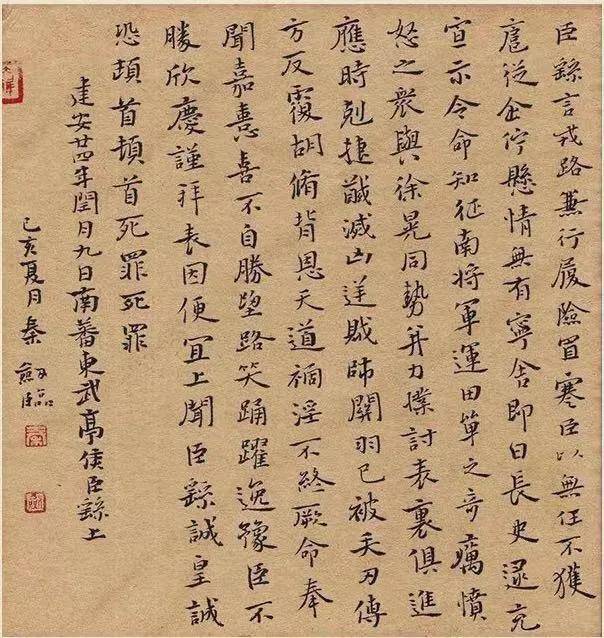 臣繇言戎路兼行履險冒寒臣以無任不獲
扈從企佇懸情無有寧舍即日長史逯充
宣示令命知征南將軍運田單之奇厲憤
怒之眾與徐晃同勢并力撲討表裏俱進
應時剋捷馘滅凶逆賊帥關羽已被矢刃傅
方反覆胡脩背恩天道禍淫不終厥命奉
聞嘉憙喜不自勝望路笑踊躍逸豫臣不
勝欣慶謹拜表因便宜上聞臣繇誠皇誠
恐頓首頓首死罪死罪
建安廿四年閏月九日南蕃東武亭侯臣繇上
己亥夏月秦臨